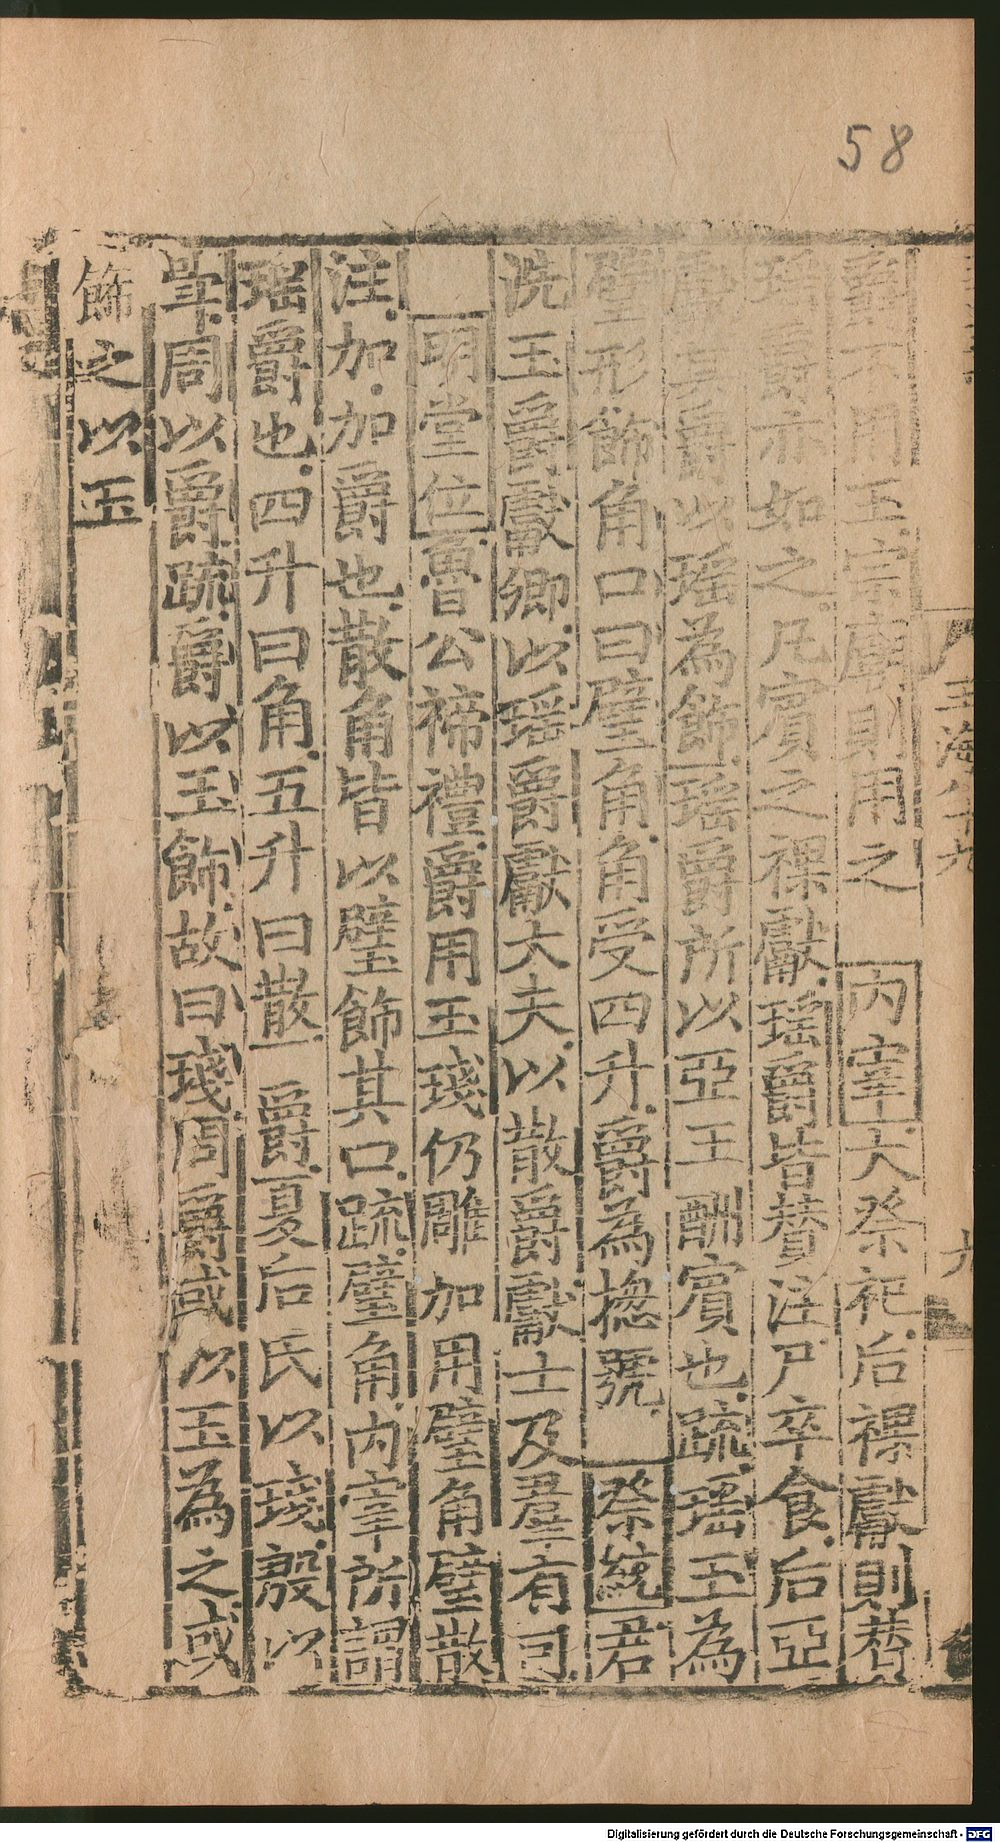 58
爵不用玉宗廟則用之　内宰大祭祀后祼獻則贊
瑶爵亦如之凡賓之祼獻瑶爵皆贊注尸卒食后亞
獻其爵以瑶為飾瑶爵所以亞王酬賓也疏瑶玉為
璧形飾角口曰璧角角受四升爵為揔號　祭統君
洗玉爵獻卿以瑶爵獻大夫以散爵獻士及羣有司
明堂位魯公禘禮爵用玉琖仍雕加用璧角璧散
注加加爵也散角皆以璧飾其口疏璧角内宰所謂
瑶爵也四升曰角五升曰散　爵夏后氏以琖殷以
斝周以爵疏爵以玉飾故曰琖周爵或以玉為之或
飾之以玉
玉海八十九
九
Digitalisierung gefördert durch die Deutsche Forschungsgemeinschaft - DFG